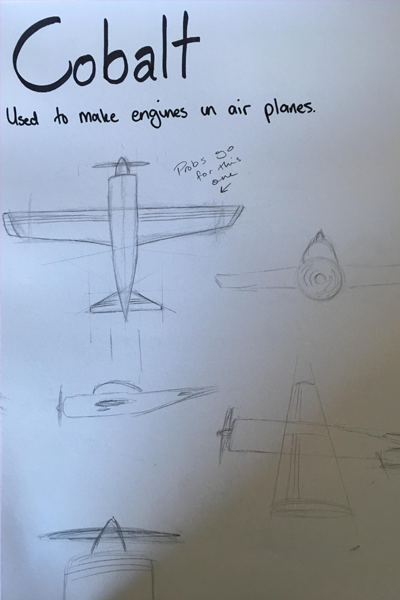 Cobalt
Used to make engines in air planes.
Probs go
for this
one